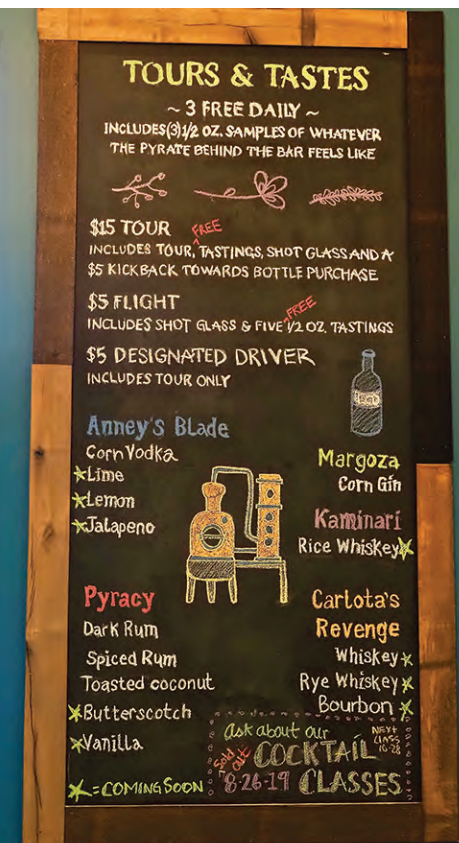 TOURS & TASTES
~ 3 FREE DAILY ~
INCLUDES (3) 1/2 OZ. SAMPLES OF WHATEVER
THE PYRATE BEHIND THE BAR FEELS LIKE
$15 TOUR
INCLUDES TOUR, FREE TASTINGS, SHOT GLASS AND A
$5 KICKBACK TOWARDS BOTTLE PURCHASE
$5 FLIGHT
INCLUDES SHOT GLASS & FIVE FREE 1/2 OZ. TASTINGS
$5 DESIGNATED DRIVER
INCLUDES TOUR ONLY
Anney's Blade
Corn Vodka
*Lime
*Lemon
*Jalapeno
Margoza
Corn Gin
Kaminari
Rice Whiskey*
Pyracy
Dark Rum
Spiced Rum
Toasted coconut
*Butterscotch
*Vanilla
*=COMING SOON
Carlota's
Revenge
Whiskey*
Rye Whiskey*
Bourbon*
ask about our
COCKTAIL
CLASSES
Sold out
8-26-19
NEXT
CLASS
10-28